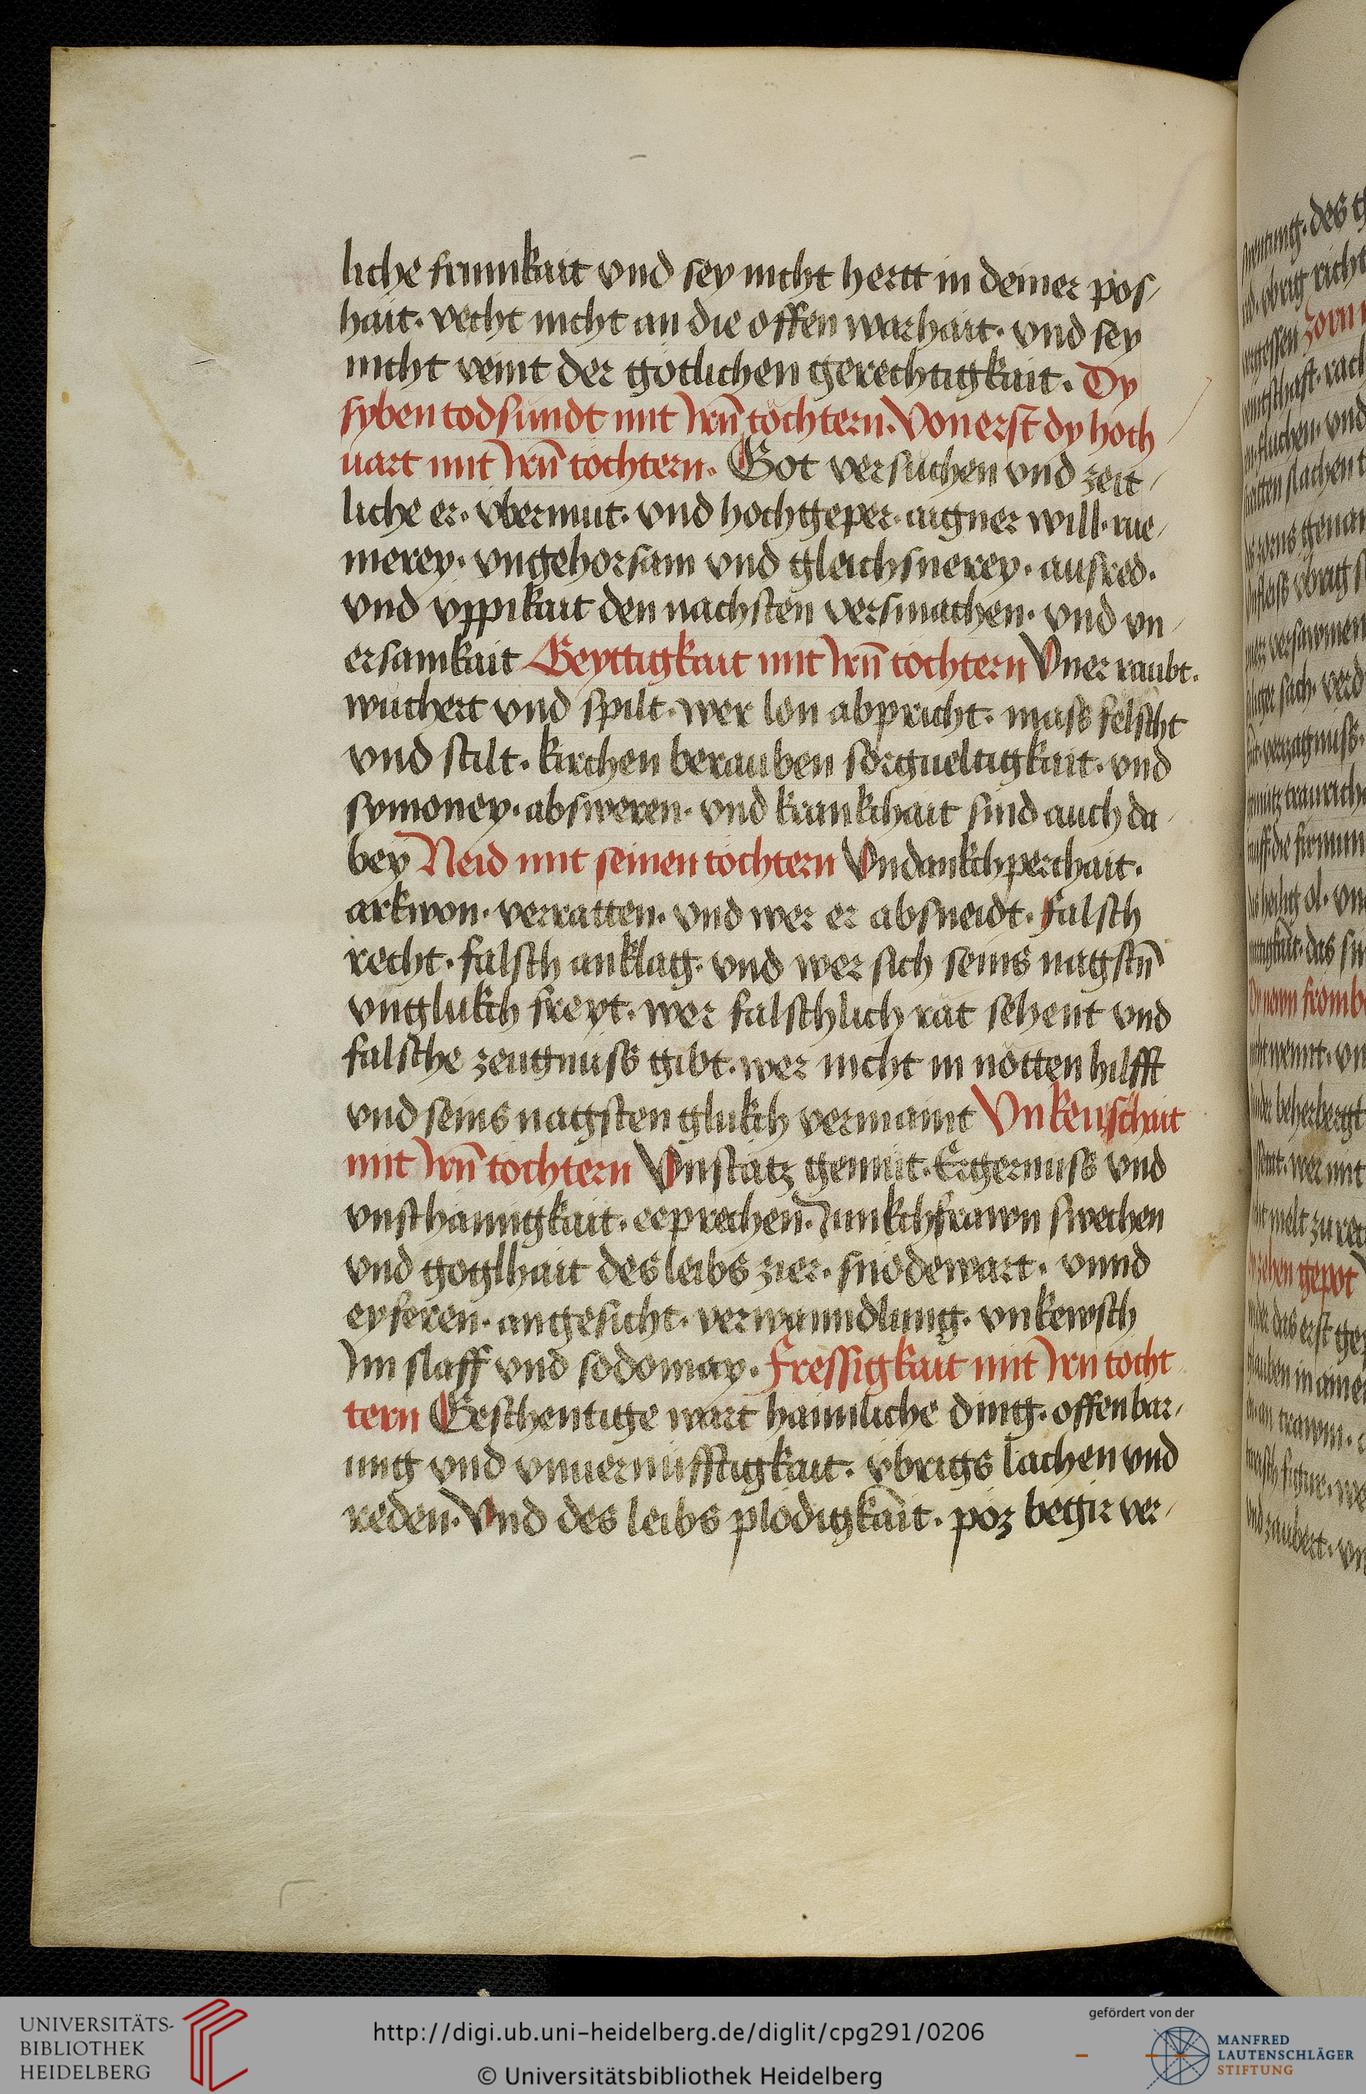 liche frumkait vnd sey nicht hertt in deiner pos-
hait. vecht nicht an die offen warhait. vnd sey
nicht veint der götlichen gerechtigkait. Dy
syben todsundt mit Irn̄ töchtern. Von erst dy hoch
uart mit Irn̄ tochtern. Got versuchen vnd zeit-
liche er. vbermut. vnd hochgeper. aigner will. rue-
merey. vngehorsam vnd gleichsnerey. ausred.
vnd vppikait den nachsten versmachen. vnd vn-
ersamkait Geyttigkait mit Irn̄ tochtern Vner raubt.
wuchert vnd spilt. wer lon abpricht. mass felscht
vnd stilt. kirchen berauben sorgueltigkait. vnd
symoney. absweren. vnd krankchait sind auch da-
bey Neid mit seinen töchtern Vndankchperchait.
arkwon. verratten. vnd wer er absneidt. falsch
recht. falsch anklag. vnd wer sich seins nagstn̄
vnglukch freyt. wer falschlich rät sehent vnd
falsche zeugnuss gibt. wer nicht in nötten hilfft
vnd seins nagsten glukch vermaint Vnkeuschait
mit Irn̄ tochtern Vnstätz gemüt. Ergernuss vnd
vnsthamigkait. eeprechen. Junkchfrawn swechen
vnd goglhait des leibs zier. snöde wart. vnnd
eyferen. angesicht. verwanndlung. vnkewsch
Im slaff vnd sodomay. Fressigkait mit Irn tocht
tern Geschentige wart haimliche ding. offenbar-
ung vnd vnuernufftigkait. übrigs lachen vnd
reden. Vnd des leibs plödigkait. pöz begir ver-
UNIVERSITÄTS-
BIBLIOTHEK
HEIDELBERG
http://digi.ub.uni-heidelberg.de/diglit/cpg291/0206
© Universitätsbibliothek Heidelberg
gefördert von der
MANFRED
LAUTENSCHLÄGER
STIFTUNG